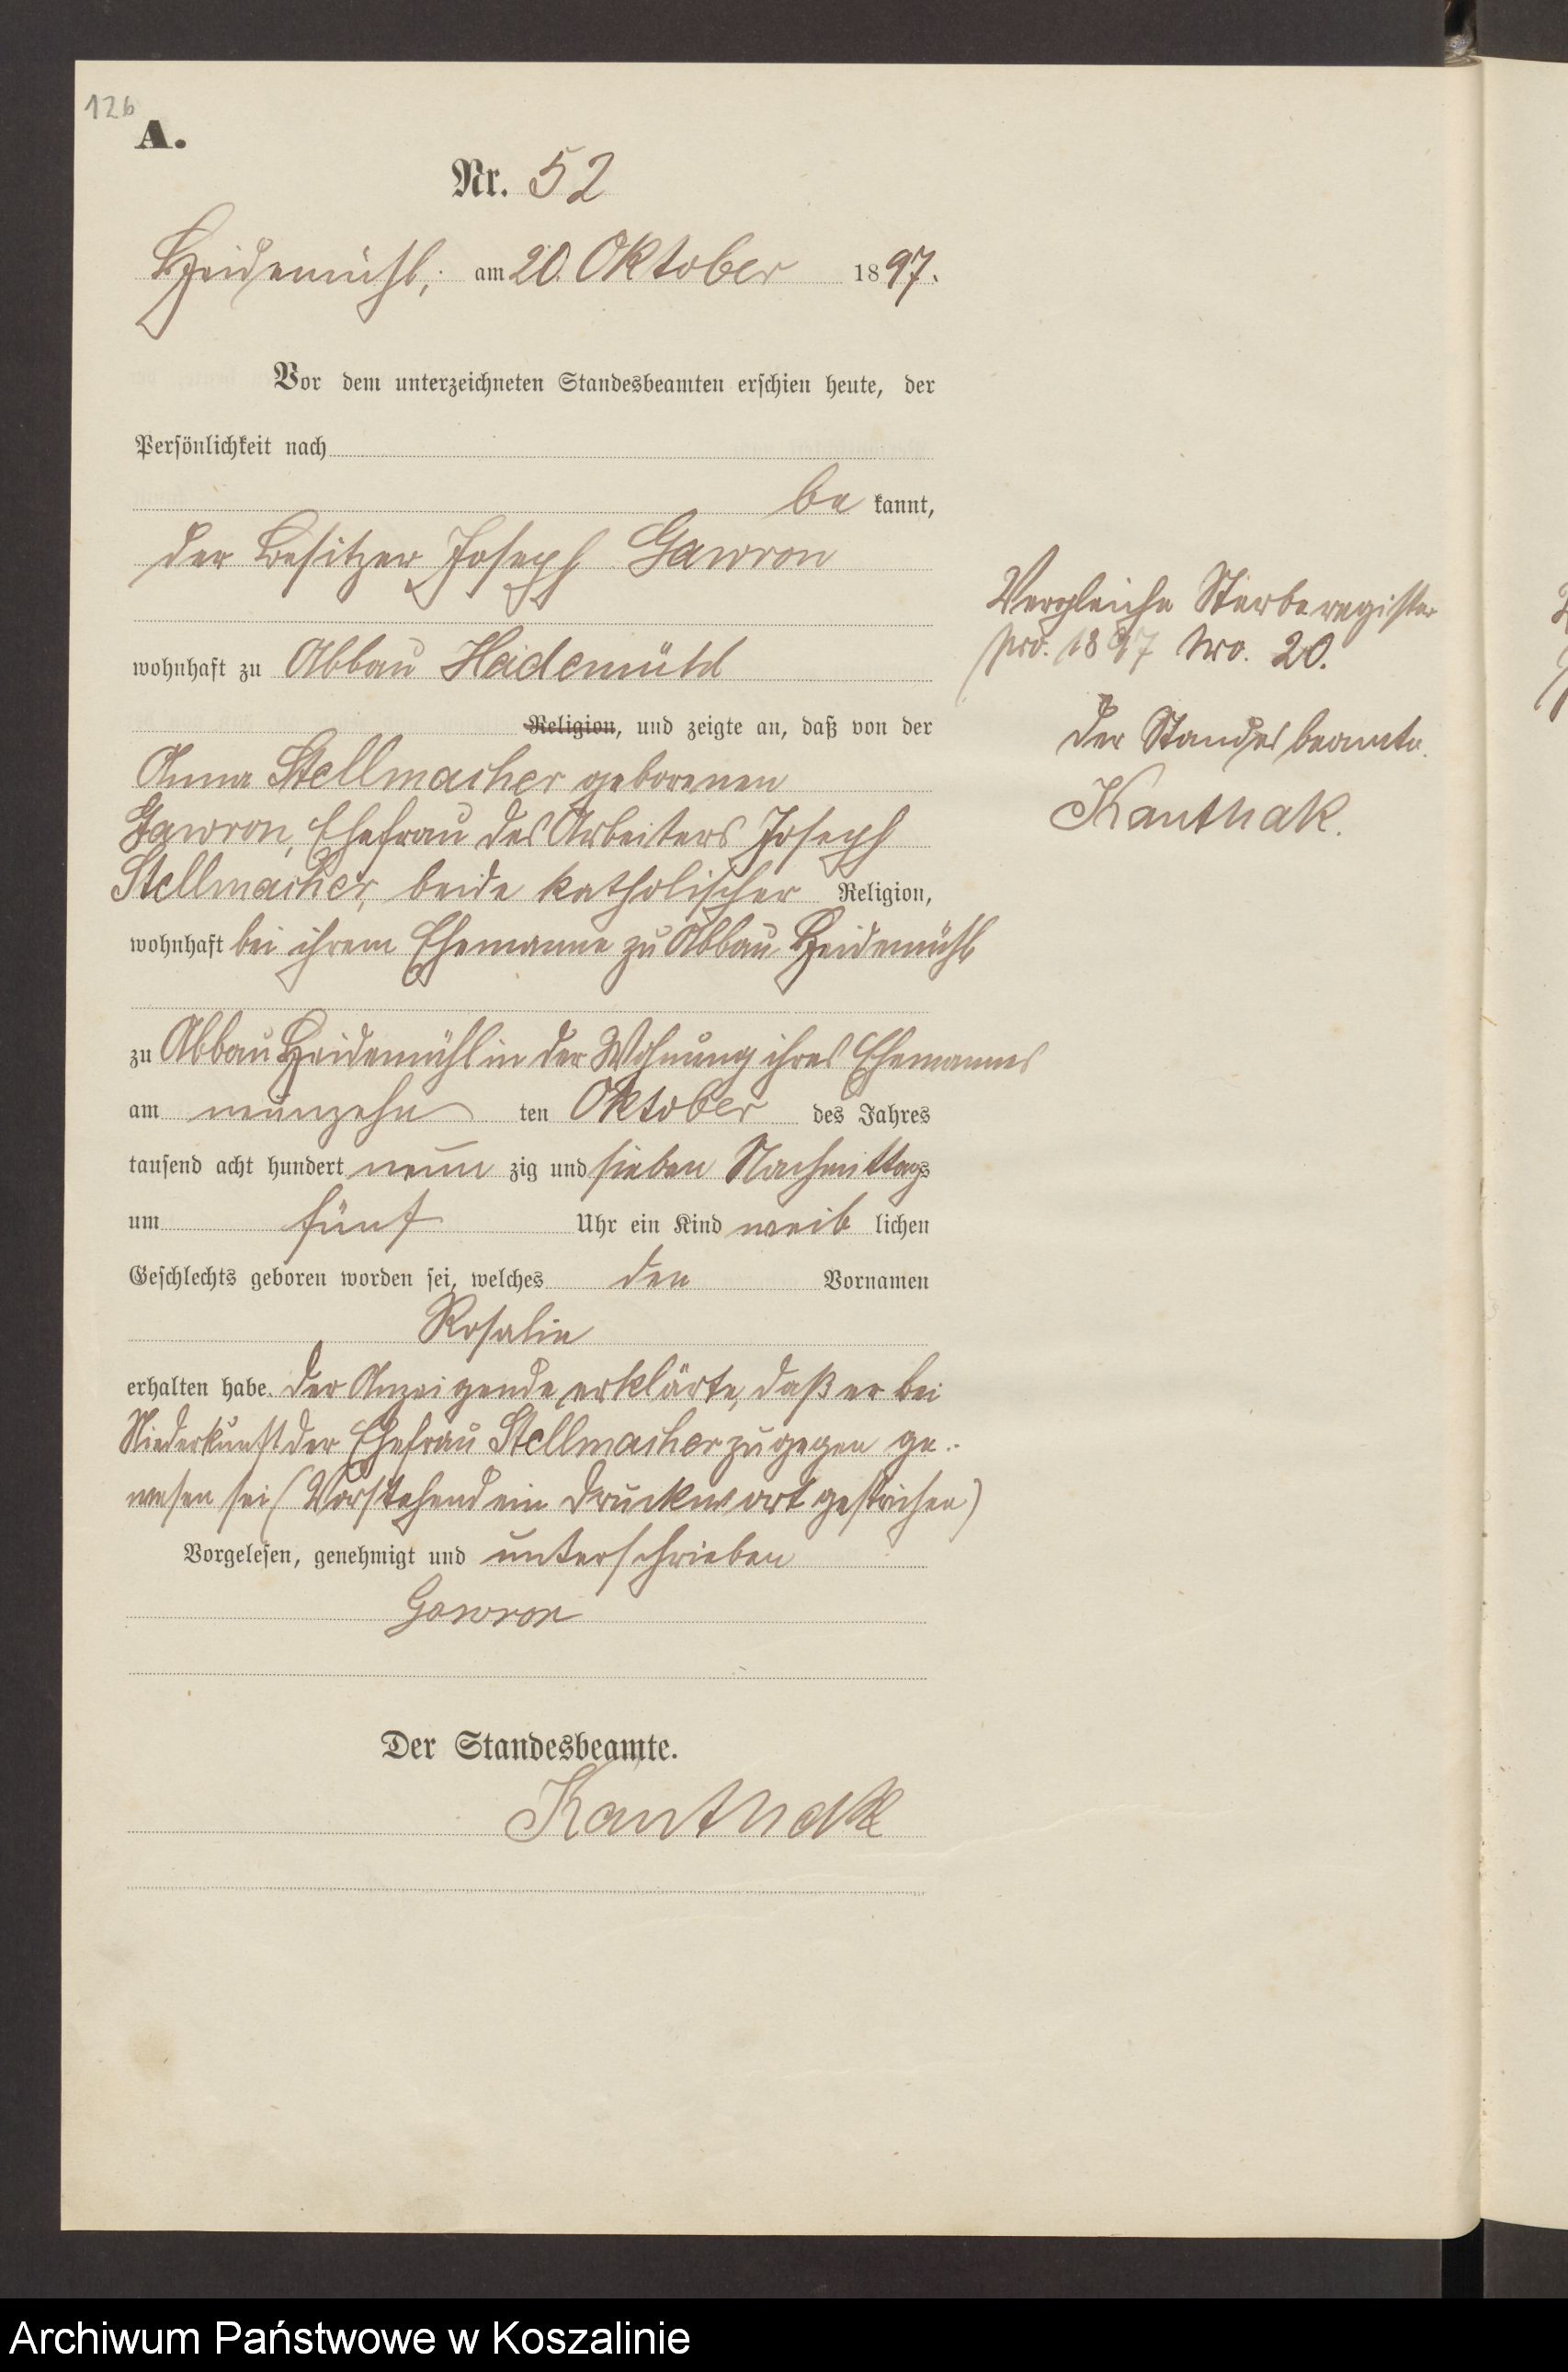 126
A.
Nr. 52
Heidemühl, am 20. Oktober 1897.
Vor dem unterzeichneten Standesbeamten erschien heute, der
Persönlichkeit nach
be kannt,
der Besitzer Joseph Gawron
wohnhaft zu Abbau Heidemühl
Religion, und zeigte an, daß von der
Anna Stellmacher geborenen
Gawron, Ehefrau des Arbeiters Joseph
Stellmacher, beide katholischer Religion,
wohnhaft bei ihrem Ehemanne zu Abbau Heidemühl
zu Abbau Heidemühl in der Wohnung ihres Ehemannes
am neunzehn ten Oktober des Jahres
tausend acht hundert neun zig und sieben Nachmittags
um fünf Uhr ein Kind weib lichen
Geschlechts geboren worden sei, welches den Vornamen
Rosalie
erhalten habe. Der Anzeigende erklärte, daß er bei
Niederkunft der Ehefrau Stellmacher zugegen ge-
wesen sei (Vorstehend ein Druckwort gestrichen)
Vorgelesen, genehmigt und unterschrieben
Gawron
Der Standesbeamte.
Kanthak
Vergleiche Sterberegister
pro. 1897 Nro. 20.
Der Standesbeamte.
Kanthak.
Archiwum Państwowe w Koszalinie